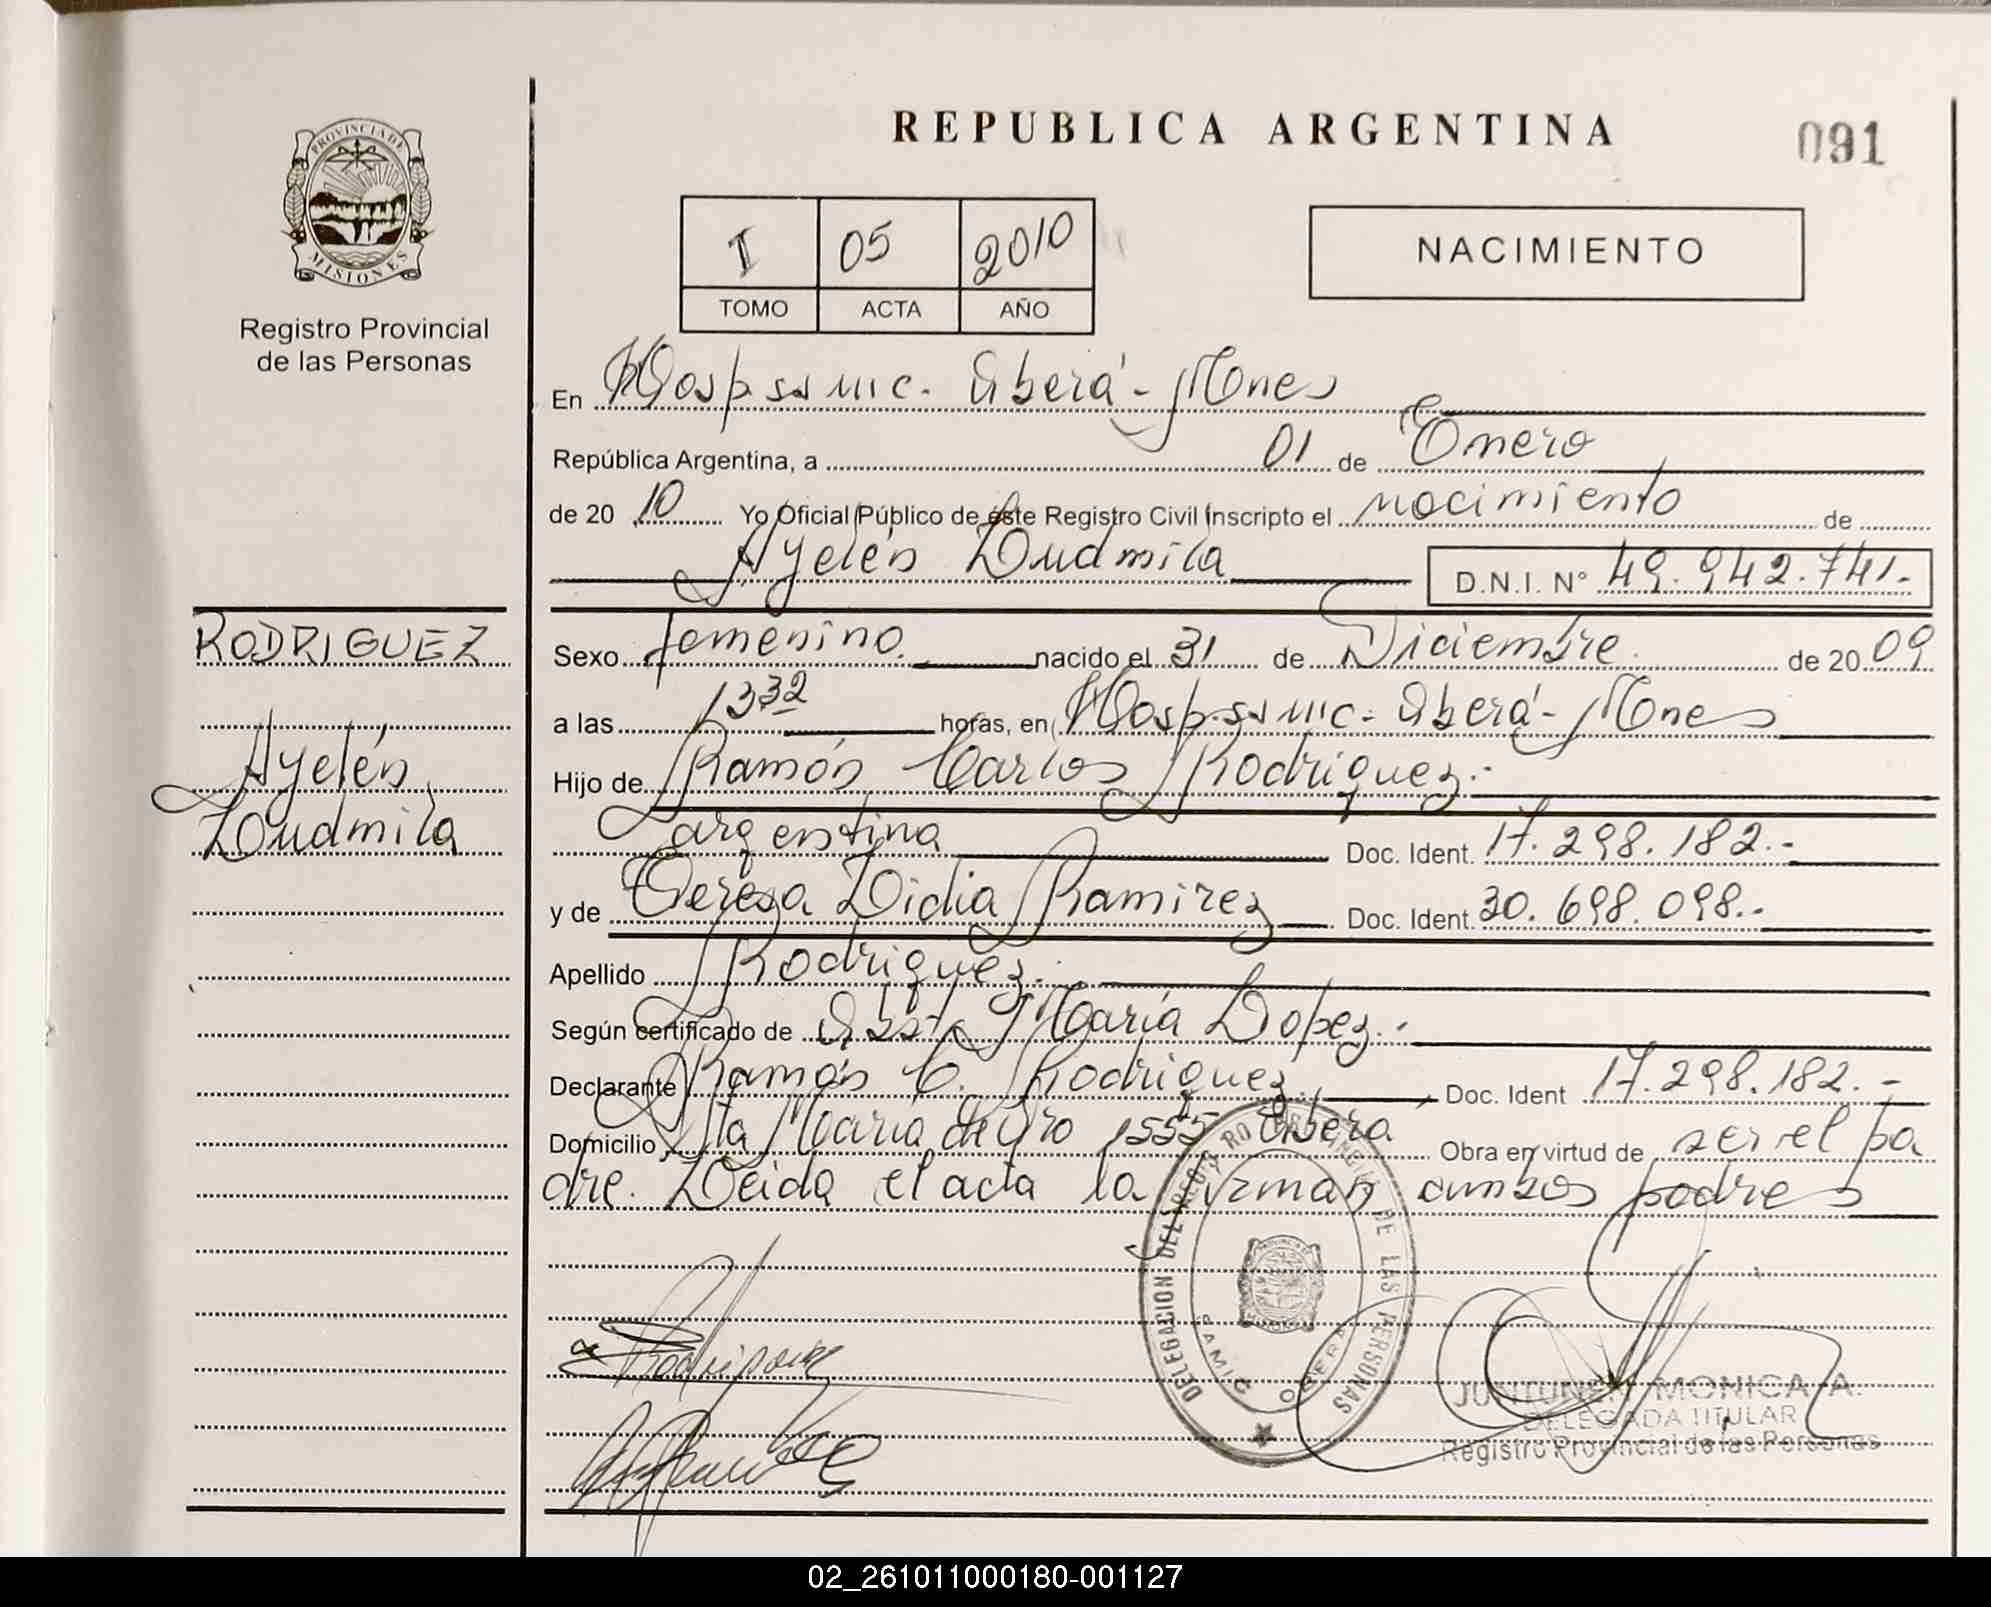 REPUBLICA ARGENTINA
091
PROVINCIA DE
MISIONES
Registro Provincial
de las Personas
I 05 2010
TOMO ACTA AÑO
NACIMIENTO
En Hosp. ss mic. Oberá - Mnes
República Argentina, a 01 de Enero
de 20 10 Yo Oficial Público de éste Registro Civil Inscripto el nacimiento de
Ayelén Ludmila D.N.I. N° 49.942.741.-
RODRIGUEZ
Ayelén
Ludmila
Sexo femenino. nacido el 31 de Diciembre. de 20 09
a las 13 32 horas, en Hosp. ss mic. Oberá - Mnes
Hijo de Ramón Carlos Rodriguez.-
argentina Doc. Ident. 17.298.182.-
y de Teresa Lidia Ramirez Doc. Ident. 30.698.098.-
Apellido Rodriguez.-
Según certificado de Obst. María Lopez.-
Declarante Ramón C. Rodriguez. Doc. Ident 17.298.182.-
Domicilio Sta María de Oro 1555 Oberá Obra en virtud de ser el pa
dre. Leida el acta la firman ambos padres
DELEGACION DEL REGISTRO PROVINCIAL DE LAS PERSONAS
OBERA
Rodriguez
MONICA A.
DELEGADA TITULAR
Registro Provincial de las Personas
02_261011000180-001127